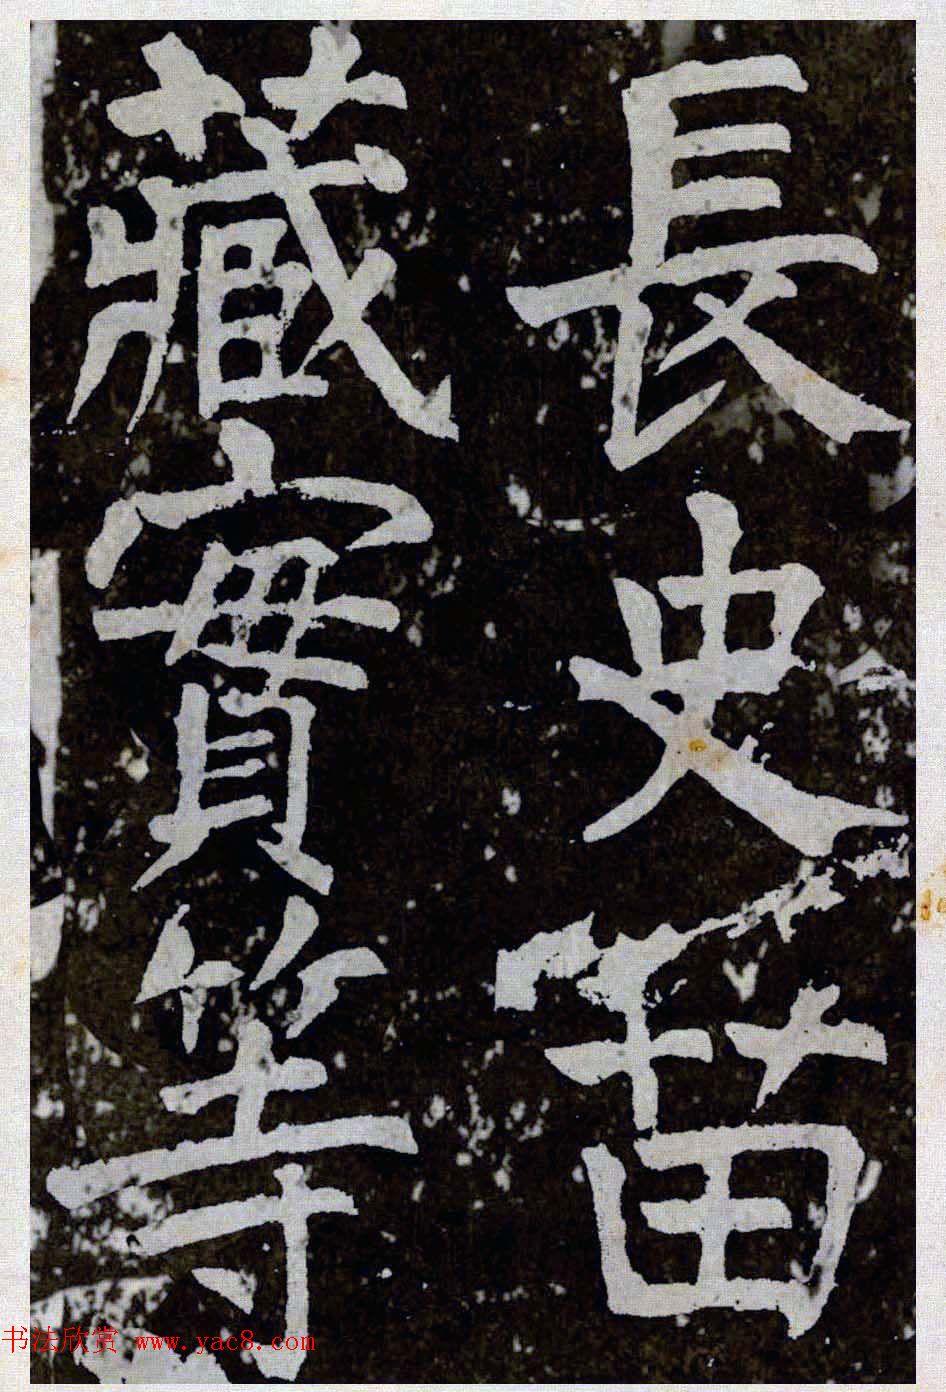 長史苗
藏實等
书法欣赏 www.yac8.com